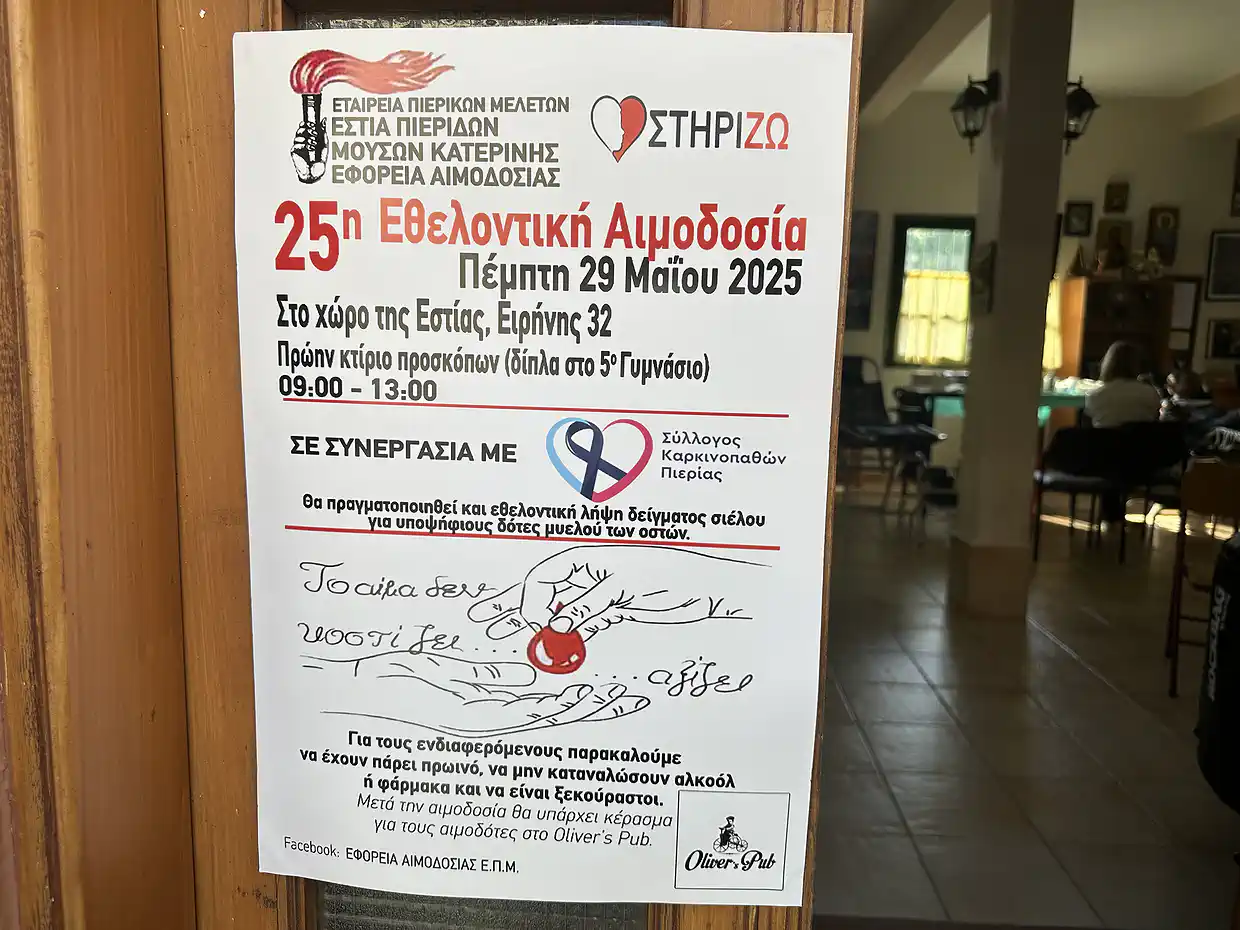 ΕΤΑΙΡΕΙΑ ΠΙΕΡΙΚΩΝ ΜΕΛΕΤΩΝ
ΕΣΤΙΑ ΠΙΕΡΙΔΩΝ
ΜΟΥΣΩΝ ΚΑΤΕΡΙΝΗΣ
ΕΦΟΡΕΙΑ ΑΙΜΟΔΟΣΙΑΣ
ΣΤΗΡΙΖΩ
25η Εθελοντική Αιμοδοσία
Πέμπτη 29 Μαΐου 2025
Στο χώρο της Εστίας, Ειρήνης 32
Πρώην κτίριο προσκόπων (δίπλα στο 5ο Γυμνάσιο)
09:00 - 13:00
ΣΕ ΣΥΝΕΡΓΑΣΙΑ ΜΕ
Σύλλογος
Καρκινοπαθών
Πιερίας
Θα πραγματοποιηθεί και εθελοντική λήψη δείγματος σιέλου
για υποψήφιους δότες μυελού των οστών.
Το αίμα δεν
κοστίζει....
....αξίζει
Για τους ενδιαφερόμενους παρακαλούμε
να έχουν πάρει πρωινό, να μην καταναλώσουν αλκοόλ
ή φάρμακα και να είναι ξεκούραστοι.
Μετά την αιμοδοσία θα υπάρχει κέρασμα
για τους αιμοδότες στο Oliver's Pub.
Facebook: ΕΦΟΡΕΙΑ ΑΙΜΟΔΟΣΙΑΣ Ε.Π.Μ.
Oliver's Pub
ROCKBAG